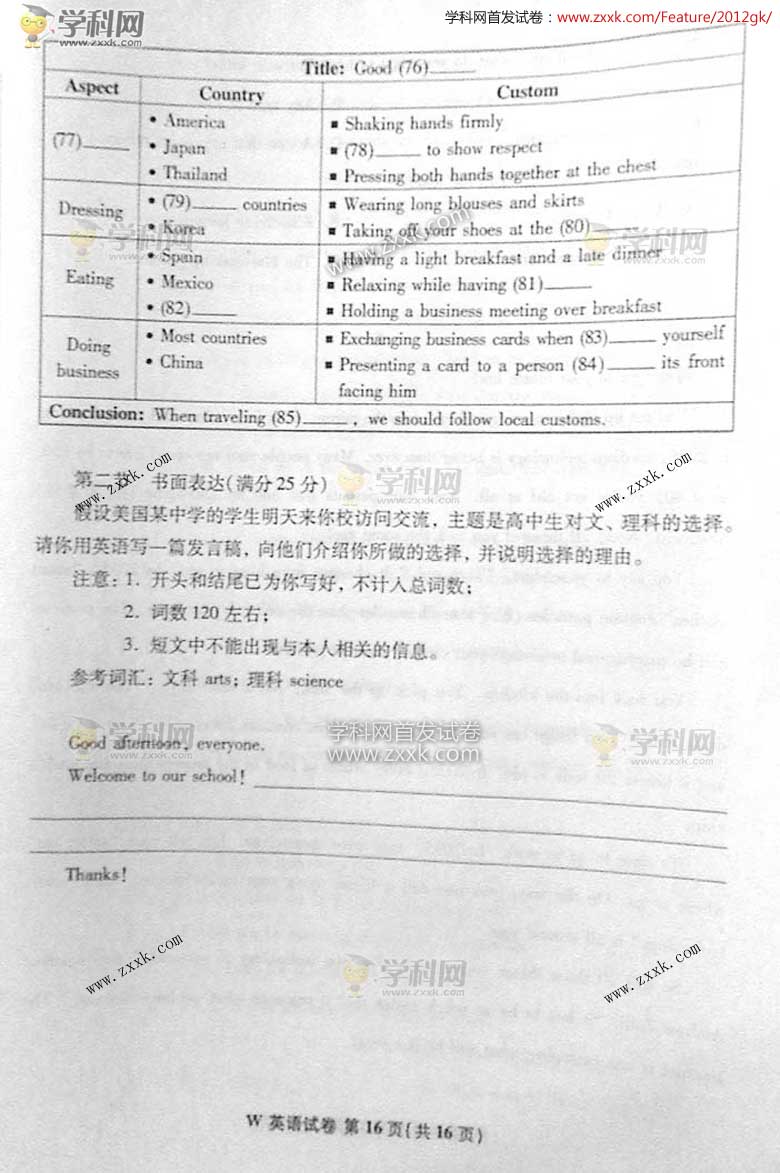 学科网首发试卷：www.zxxk.com/Feature/2012gk/
学科网
www.zxxk.com
Title: Good (76)______
Aspect Country Custom
(77)______
• America ■ Shaking hands firmly
• Japan ■ (78)______ to show respect
• Thailand ■ Pressing both hands together at the chest
Dressing
• (79)______ countries ■ Wearing long blouses and skirts
• Korea ■ Taking off your shoes at the (80)______
Eating
• Spain ■ Having a light breakfast and a late dinner
• Mexico ■ Relaxing while having (81)______
• (82)______ ■ Holding a business meeting over breakfast
Doing business
• Most countries ■ Exchanging business cards when (83)______ yourself
• China ■ Presenting a card to a person (84)______ its front
facing him
Conclusion: When traveling (85)______, we should follow local customs.
第二节 书面表达(满分25分)
假设美国某中学的学生明天来你校访问交流，主题是高中生对文、理科的选择。
请你用英语写一篇发言稿，向他们介绍你所做的选择，并说明选择的理由。
注意：1. 开头和结尾已为你写好，不计入总词数；
2. 词数120左右；
3. 短文中不能出现与本人相关的信息。
参考词汇：文科 arts；理科 science
学科网首发试卷
www.zxxk.com
Good afternoon, everyone.
Welcome to our school!
Thanks!
www.zxxk.com
学科网
www.zxxk.com
W 英语试卷 第16页(共16页)